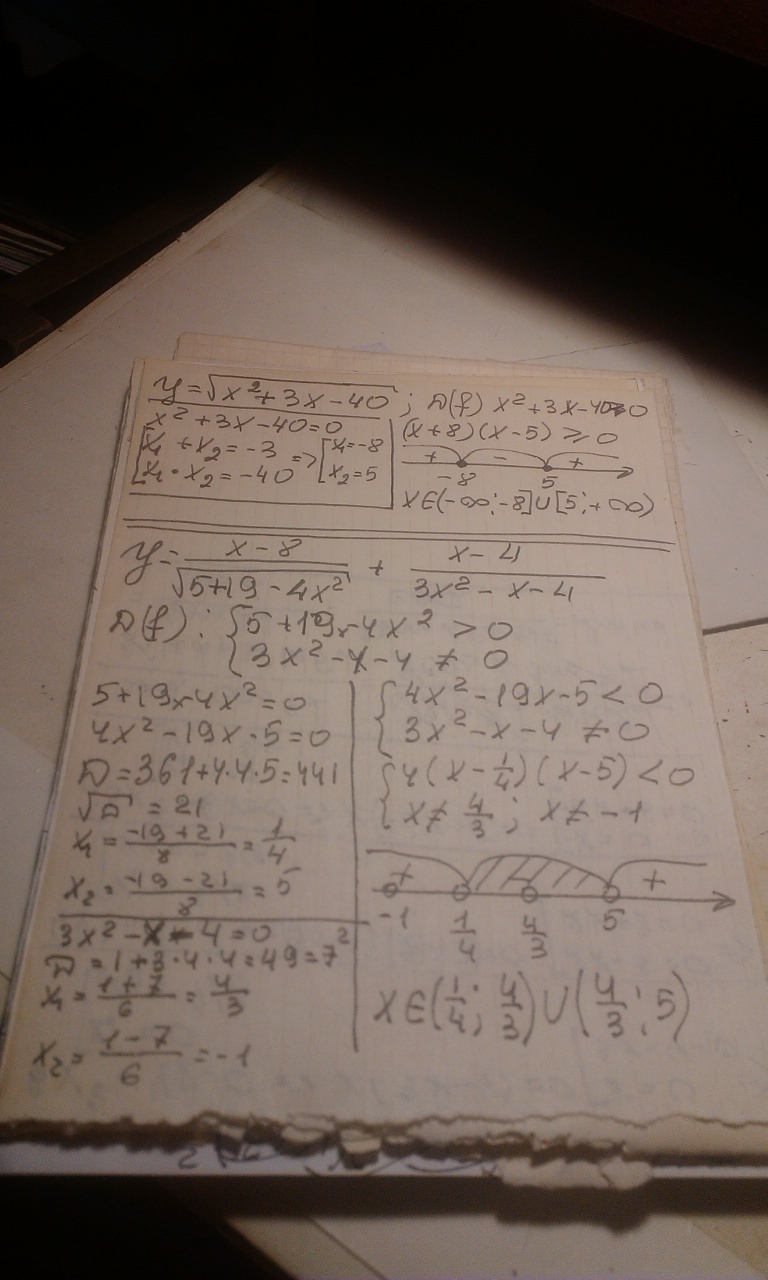 y = √x² + 3x - 40 ; D(f) x² + 3x - 40 ≥ 0
x² + 3x - 40 = 0
[x₁ + x₂ = -3
[x₁ · x₂ = -40
=> [x₁ = -8
[x₂ = 5
(x + 8)(x - 5) ≥ 0
+ - +
-8 5
x ∈ (-∞; -8] ∪ [5; +∞)
y = x - 8 / √5 + 19 - 4x² + x - 4 / 3x² - x - 4
D(f) : { 5 + 19x - 4x² > 0
{ 3x² - x - 4 ≠ 0
5 + 19x - 4x² = 0
4x² - 19x - 5 = 0
D = 361 + 4·4·5 = 441
√D = 21
x₁ = -19 + 21 / 8 = 1/4
x₂ = -19 - 21 / 8 = 5
3x² - x - 4 = 0
D = 1 + 3·4·4 = 49 = 7²
x₁ = 1 + 7 / 6 = 4/3
x₂ = 1 - 7 / 6 = -1
{ 4x² - 19x - 5 < 0
{ 3x² - x - 4 ≠ 0
{ 4(x - 1/4)(x - 5) < 0
{ x ≠ 4/3 ; x ≠ -1
+ - +
-1 1/4 4/3 5
x ∈ (1/4; 4/3) ∪ (4/3; 5)